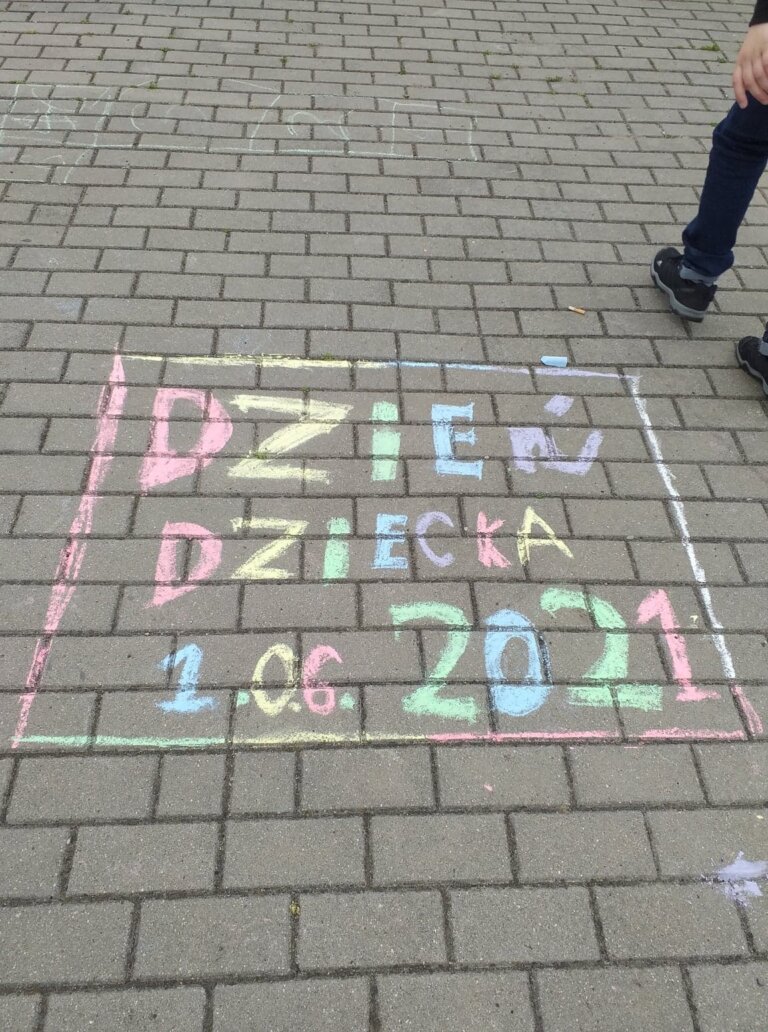 DZIEŃ
DZIECKA
1.06.2021